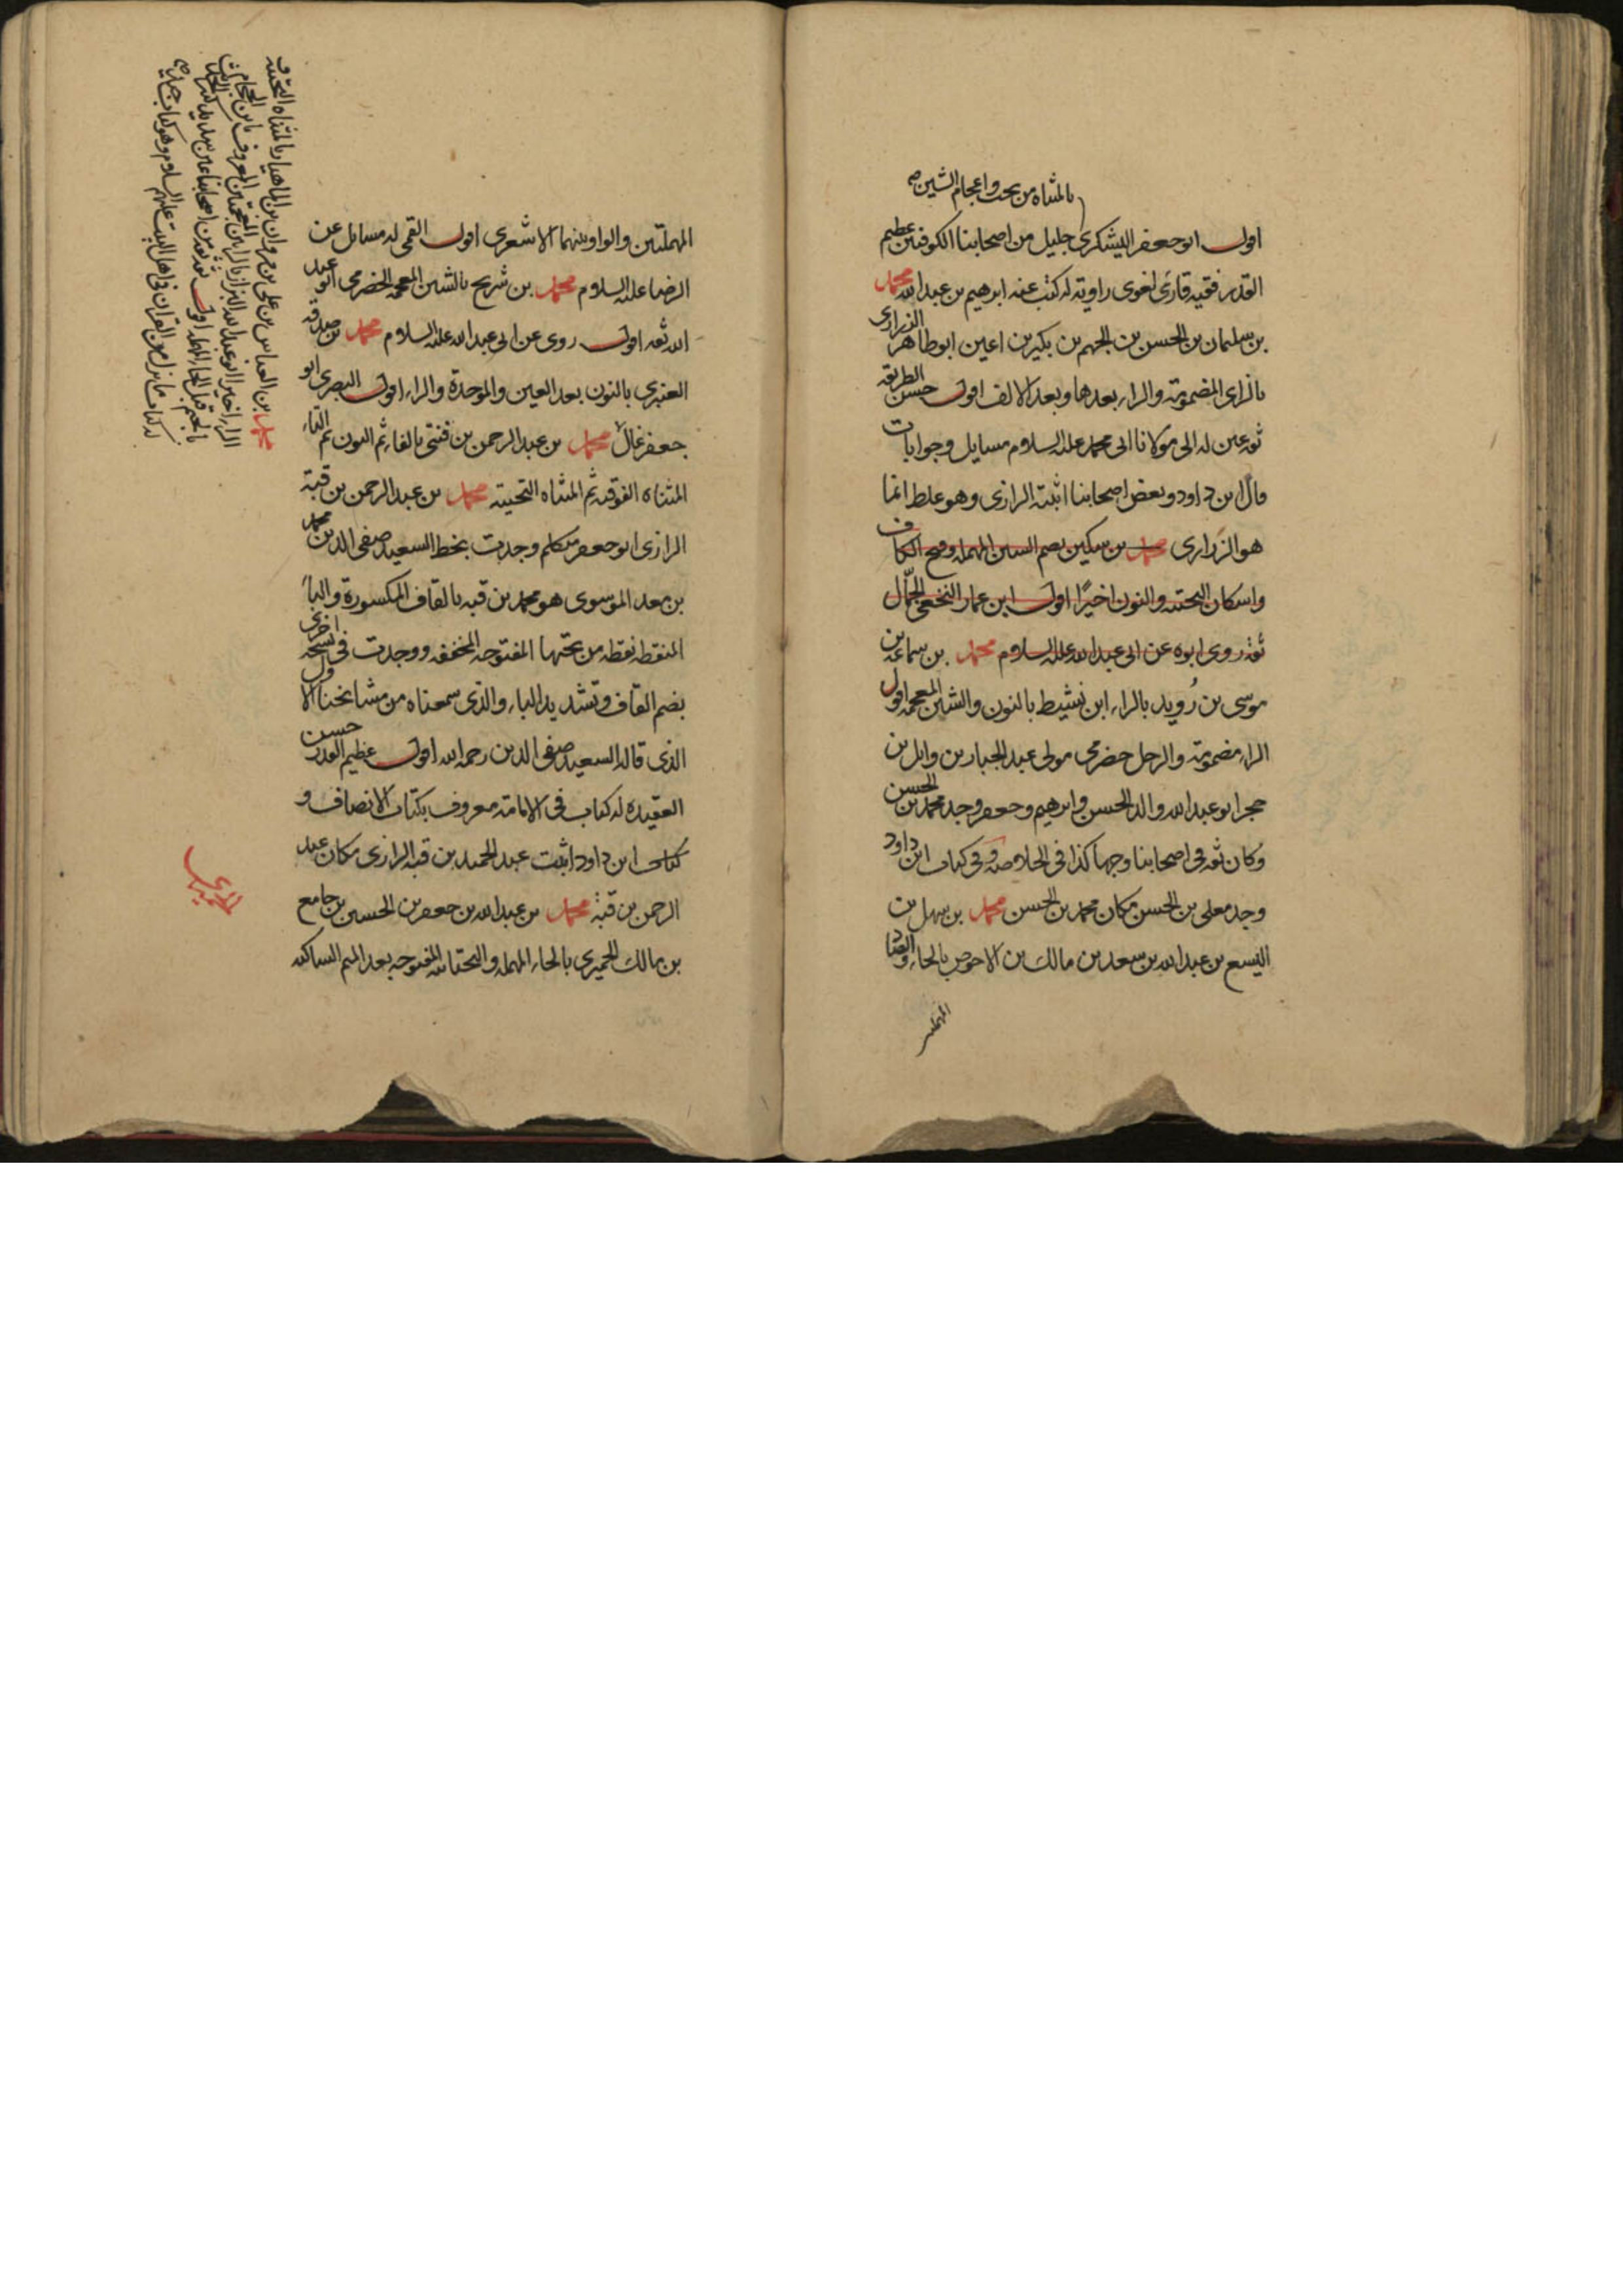 بالمثناه من تحت واعجام الشين صح
اقول ابو جعفر اليشكري جليل من اصحابنا الكوفيين عظيم
القدر فقيه قارئ لغوي راويه له كتب عنه ابرهيم بن عبد الله محمد
بن سليمان بن الحسن بن الجهم بن بكير بن اعين ابو طاهر الزراري
بالزاى المضمومة والراء بعدها وبعد الالف اقول حسن الطريقه
ثقه عين له الى مولانا ابى محمد عليه السلام مسايل وجوابات
قال ابن داود وبعض اصحابنا اثبته الرازى وهو غلط انما
هو الزرارى محمد بن سكين بضم السين المهمله وفتح الكاف
واسكان التحتيه والنون اخيرًا اقول ابن عمار النخعى الجمّال
ثقه روى ابوه عن ابى عبد الله عليه السلام محمد بن سماعه بن
موسى بن رُويد بالراء ابن نشيط بالنون والشين المعجمه اقول
الراء مضمومة والرجل حضرمى مولى عبد الجبار بن وايل بن
حجر ابو عبد الله والد الحسن وابرهيم وجعفر وجد محمد بن الحسن
وكان ثقه فى اصحابنا وجها كذا فى الخلاصه وفى كتاب ابن داود
وجد معلى بن الحسن مكان محمد بن الحسن محمد بن سهل بن
اليسع بن عبد الله بن سعد بن مالك بن الاحوص بالحاء والصاد
المهملتين
المهملتين والواو بينهما الاشعرى اقول القمى له مسايل عن
الرضا عليه السلام محمد بن شريح بالشين المعجمه الحضرمى ابو عبد
الله ثقه اقول روى عن ابى عبد الله عليه السلام محمد بن صدقه
العنبرى بالنون بعد العين والموحدة والراء اقول البصرى ابو
جعفر غالٍ محمد بن عبد الرحمن بن فنتى بالفاء ثم النون ثم التاء
المثناه الفوقيه ثم المثناه التحتيه محمد بن عبد الرحمن بن قبة
الرازى ابو جعفر متكلم وجدت بخط السعيد صفى الدين محمد
بن معد الموسوى هو محمد بن قبه بالقاف المكسورة والباء
المنقطه نقطه من تحتها المفتوحه المخففه ووجدت فى نسخه اخرى
بضم القاف وتشديد الباء والذى سمعناه من مشايخنا الاول
الذى قاله السعيد صفى الدين رحمه الله اقول عظيم القدر حسن
العقيده له كتاب فى الامامة معروف بكتاب الانصاف و
كتاب ابن داود اثبت عبد الحميد بن قبه الرازى مكان عبد
الرحمن بن قبة محمد بن عبد الله بن جعفر بن الحسين بن جامع
بن مالك الحميرى بالحاء المهمله والتحتانيه المفتوحه بعد الميم الساكنه
الحميرى
محمد بن العباس بن على بن مروان بن الماهيار بالمثناه التحتيه و
الراء اخيرا ابو عبد الله البزاز بالزايين المعجمتين المعروف بابن الحجام
بالجيم قبل الحاء المهمله اقول ثقه ثقه من اصحابنا عين سديد
له كتاب ما نزل من القران فى اهل البيت عليهم السلام وهو كتاب جليل صح